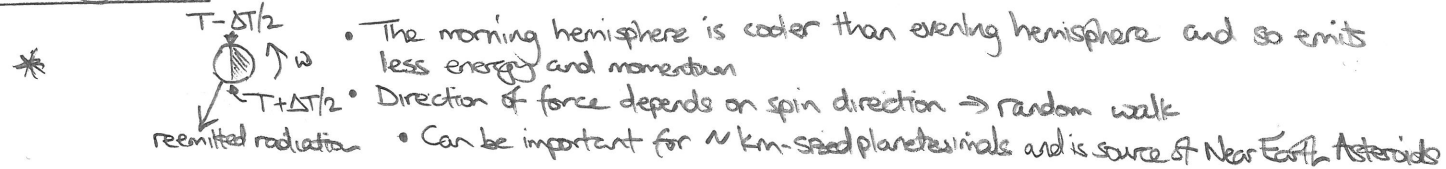 T-ΔT/2
• The morning hemisphere is cooler than evening hemisphere and so emits
less energy and momentum
ω
T+ΔT/2
• Direction of force depends on spin direction → random walk
reemitted radiation
• Can be important for ~ km-sized planetesimals and is source of Near Earth Asteroids